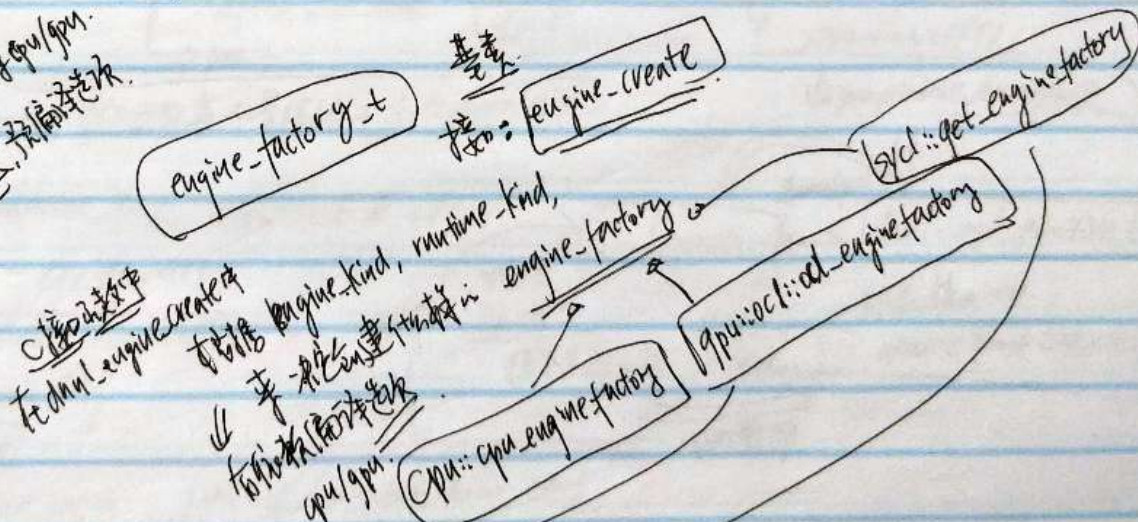 cpu/gpu.
编译选项.
engine_factory_t
基类
接口: engine_create
sycl::get_engine_factory
C接口函数中
在dnnl_engine_create中
根据 engine_kind, runtime_kind,
来 创建什么样的 engine_factory
cpu/gpu.
cpu::cpu_engine_factory
gpu::ocl::ocl_engine_factory